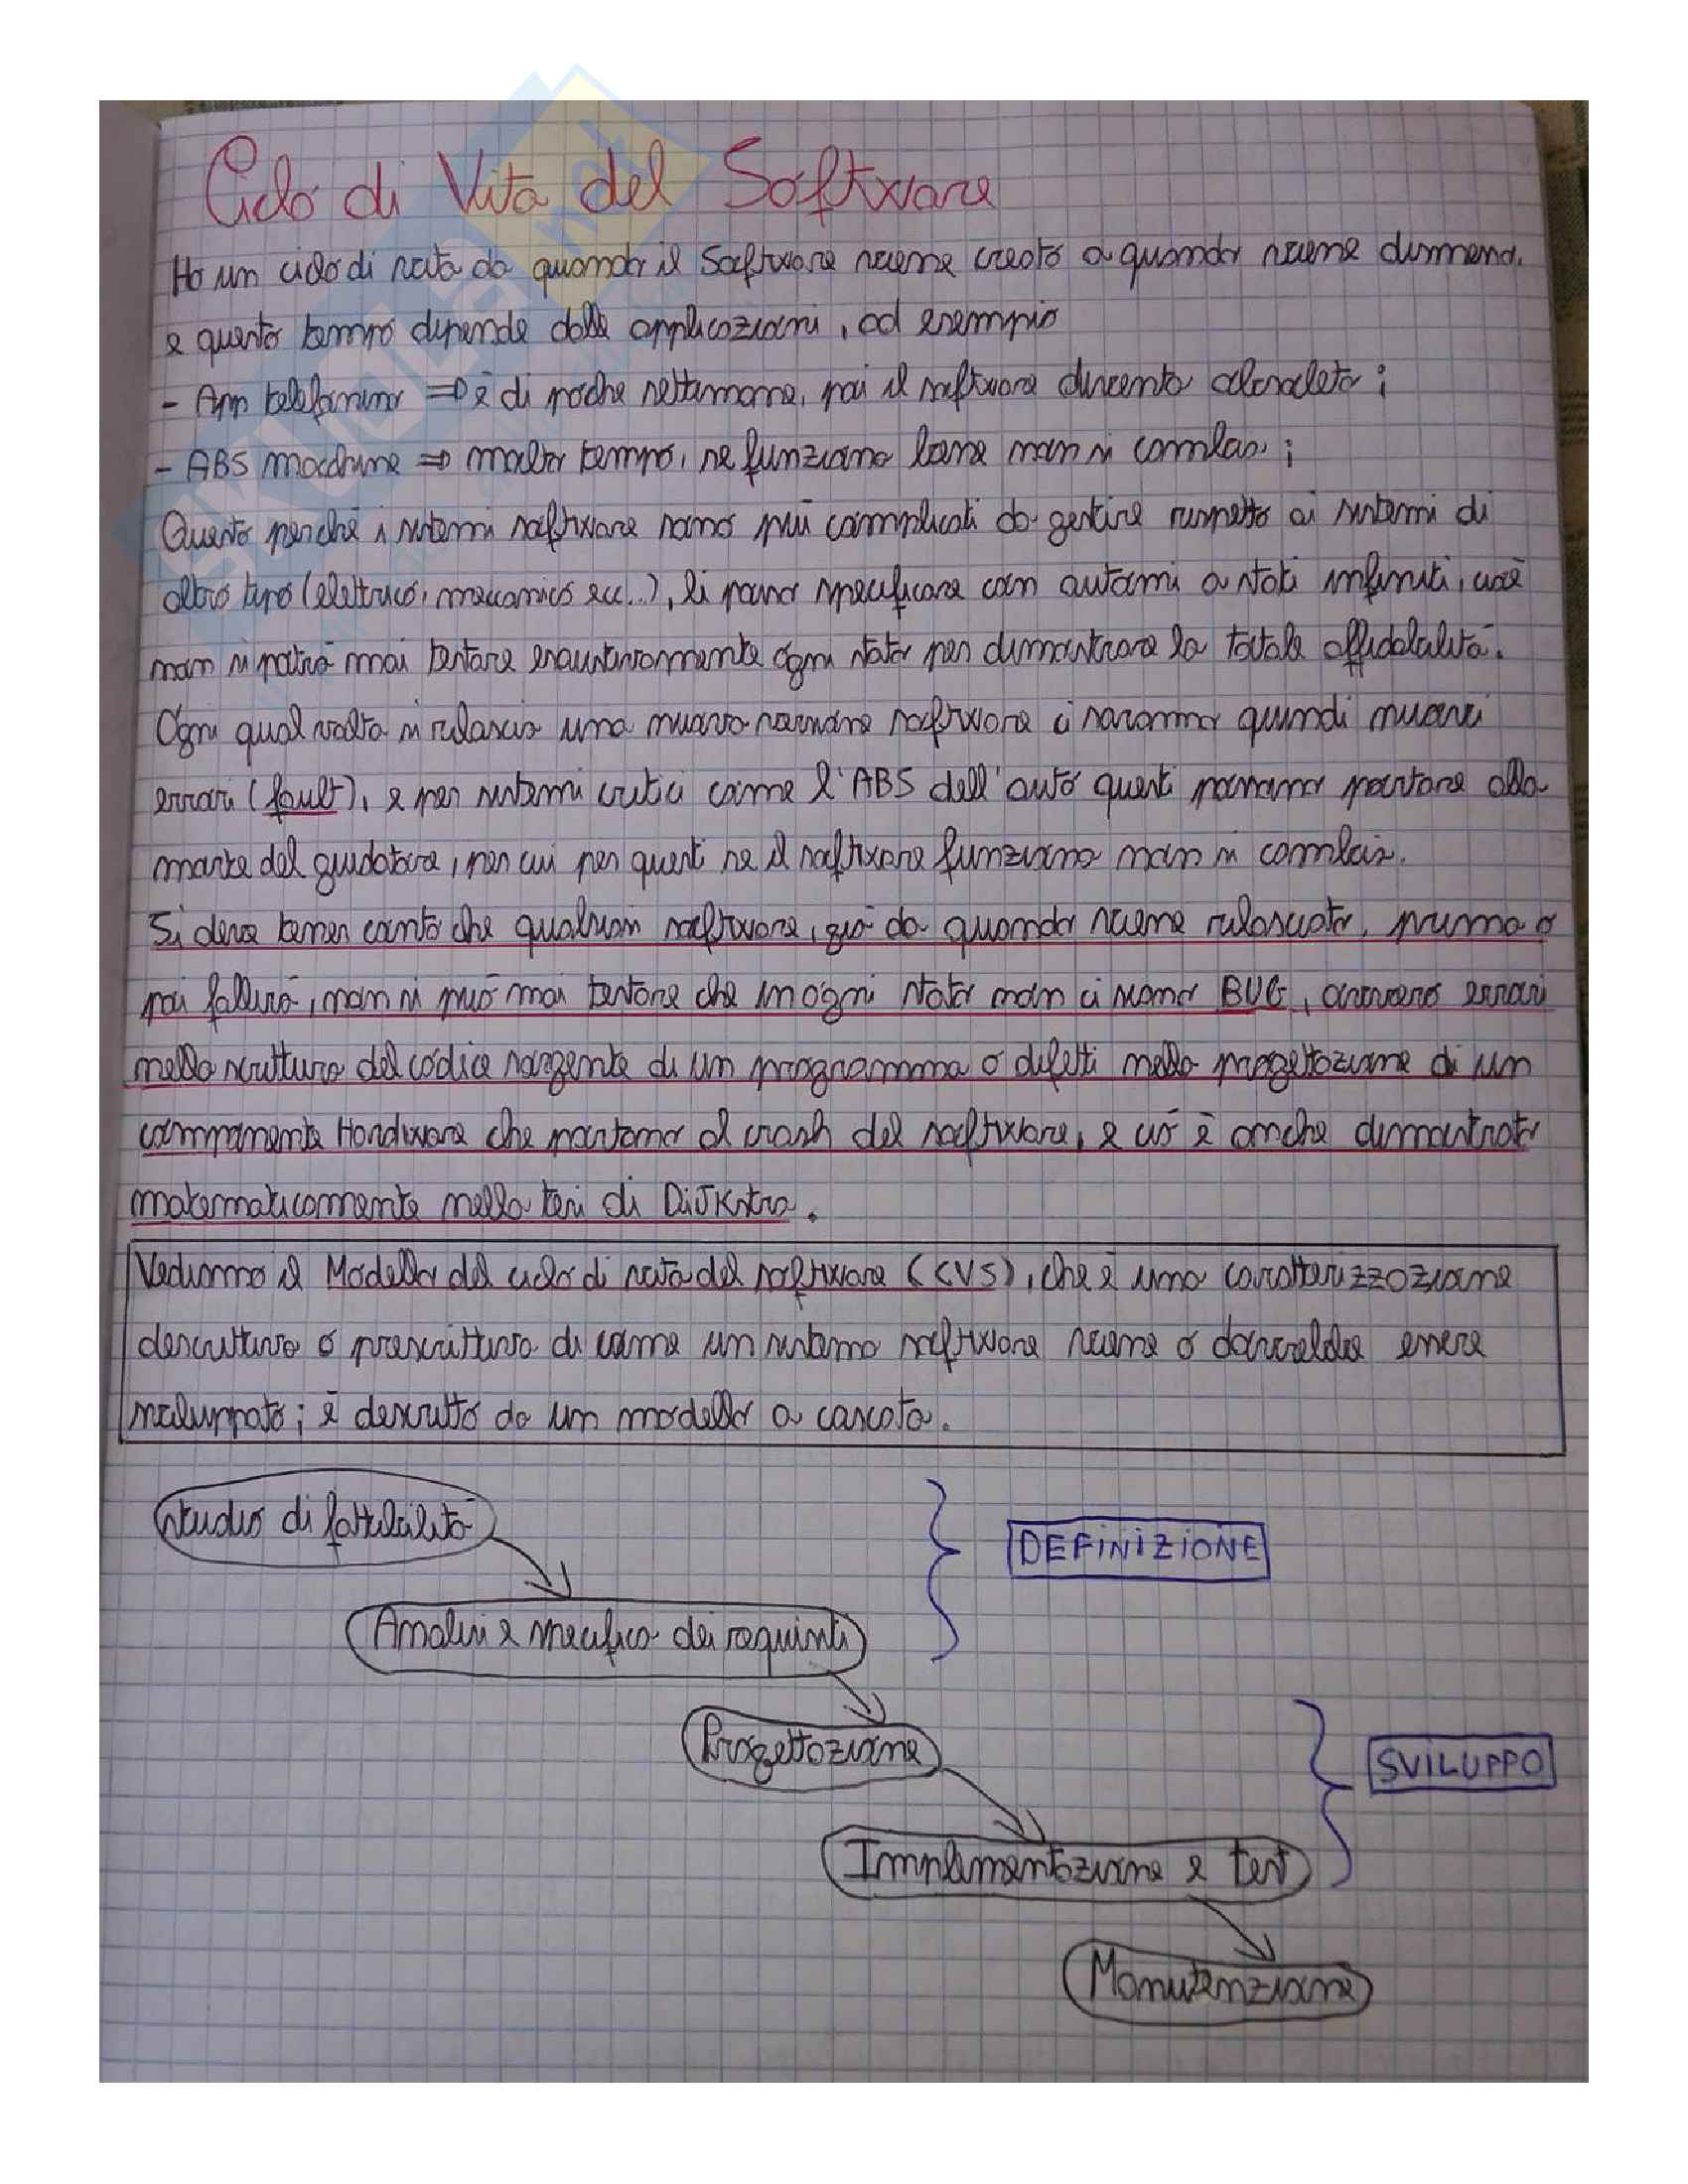 Ciclo di Vita del Software
Ho un ciclo di vita da quando il Software viene creato a quando viene dismesso,
e questo tempo dipende dalle applicazioni, ad esempio
- App telefonino ⇒ è di poche settimane, poi il software diventa obsoleto;
- ABS macchine ⇒ molto tempo, se funziona bene non si cambia;
Questo perché i sistemi software sono più complicati da gestire rispetto ai sistemi di
altro tipo (elettrico, meccanico ecc...), li posso specificare con automi a stati infiniti, cioè
non si potrà mai testare esaustivamente ogni stato per dimostrare la totale affidabilità.
Ogni qual volta si rilascia una nuova versione software ci saranno quindi nuovi
errori (fault), e per sistemi critici come l'ABS dell'auto questi possono portare alla
morte del guidatore, per cui per questi se il software funziona non si cambia.
Si deve tener conto che qualsiasi software, già da quando viene rilasciato, prima o
poi fallirà, non si può mai testare che in ogni stato non ci siano BUG, ovvero errori
nella scrittura del codice sorgente di un programma o difetti nella progettazione di un
componente Hardware che portano al crash del software, e ciò è anche dimostrato
matematicamente nella tesi di DiJKstra.
Vediamo il Modello del ciclo di vita del software (CVS), che è una caratterizzazione
descrittiva o prescrittiva di come un sistema software viene o dovrebbe essere
sviluppato; è descritto da un modello a cascata.
Studio di fattibilità
DEFINIZIONE
Analisi e specifica dei requisiti
Progettazione
SVILUPPO
Implementazione e test
Manutenzione
SKUOLA.net